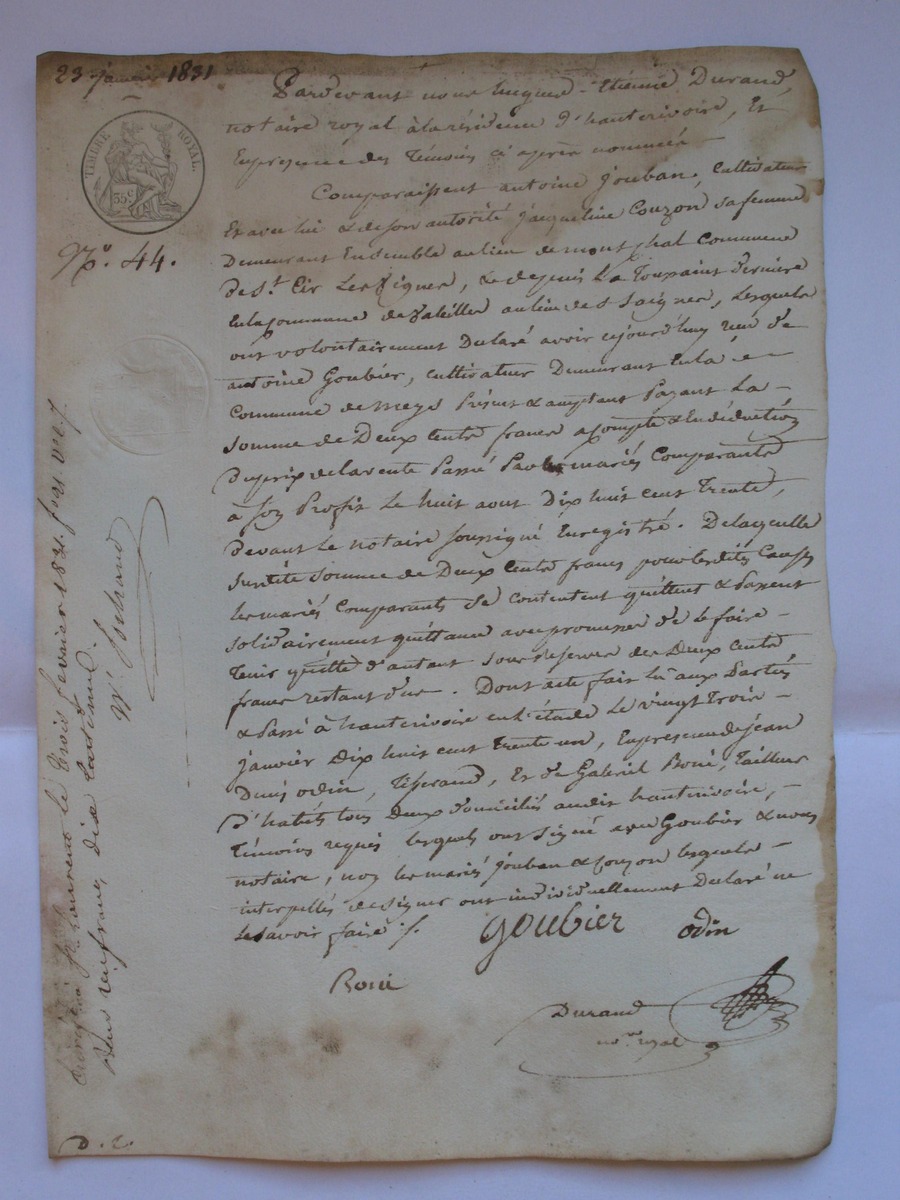 23 janvier 1831
TIMBRE ROYAL
35 c
N.o 44.
Pardevant nous hugues-Etienne Durand,
notaire royal à la résidence d'hauterivoire, Et
En présence des Témoins ci après nommés
Comparaissent antoine Jouban, cultivateur
Et avec lui & de son autorité Jacqueline Couzon sa femme
Demeurant Ensemble au lieu de montchal commune
de St Cir Les Vignes, & depuis La Toussaint Dernière
En la commune de Valeille au lieu de Saignes, Lesquels
ont volontairement Déclaré avoir cejourd'huy reçu de
antoine Goubier, cultivateur Demeurant En la
commune de meys Présent & acceptant Payant La
Somme de Deux Cents francs acompte & En déduction
Du prix de la vente Passé Par les mariés Comparants
à son Profit Le huit aout Dix huit cent Trente,
Devant Le notaire soussigné Enregistré. De laquelle
susdite somme de Deux Cents francs pour lesdites Causes
les mariés Comparants se contentent quittent & Passent
solidairement quittance avec promesse de Le faire
Tenir quitte d'autant sous réserve des Deux Cents
francs restant dus. Dont acte fait lu aux Parties
& Passé à hauterivoire en L'étude Le vingt Trois
janvier Dix huit cent Trente un, En présence de jean
Denis odin, Tisserand, Et de Gabriel Boué, Tailleur
d'habits tous Deux domiciliés audit hauterivoire,
Témoins requis lesquels ont signé avec Goubier & nous
notaire, non les mariés Jouban & Couzon lesquels
interpellés de signer ont individuellement Déclaré ne
le savoir faire ./.
Goubier odin
Boué
Durand
no.re royal
Enregistré à St Laurent le trois fevrier 1831. fo 91
Reçu un franc dix centimes.
D. L.